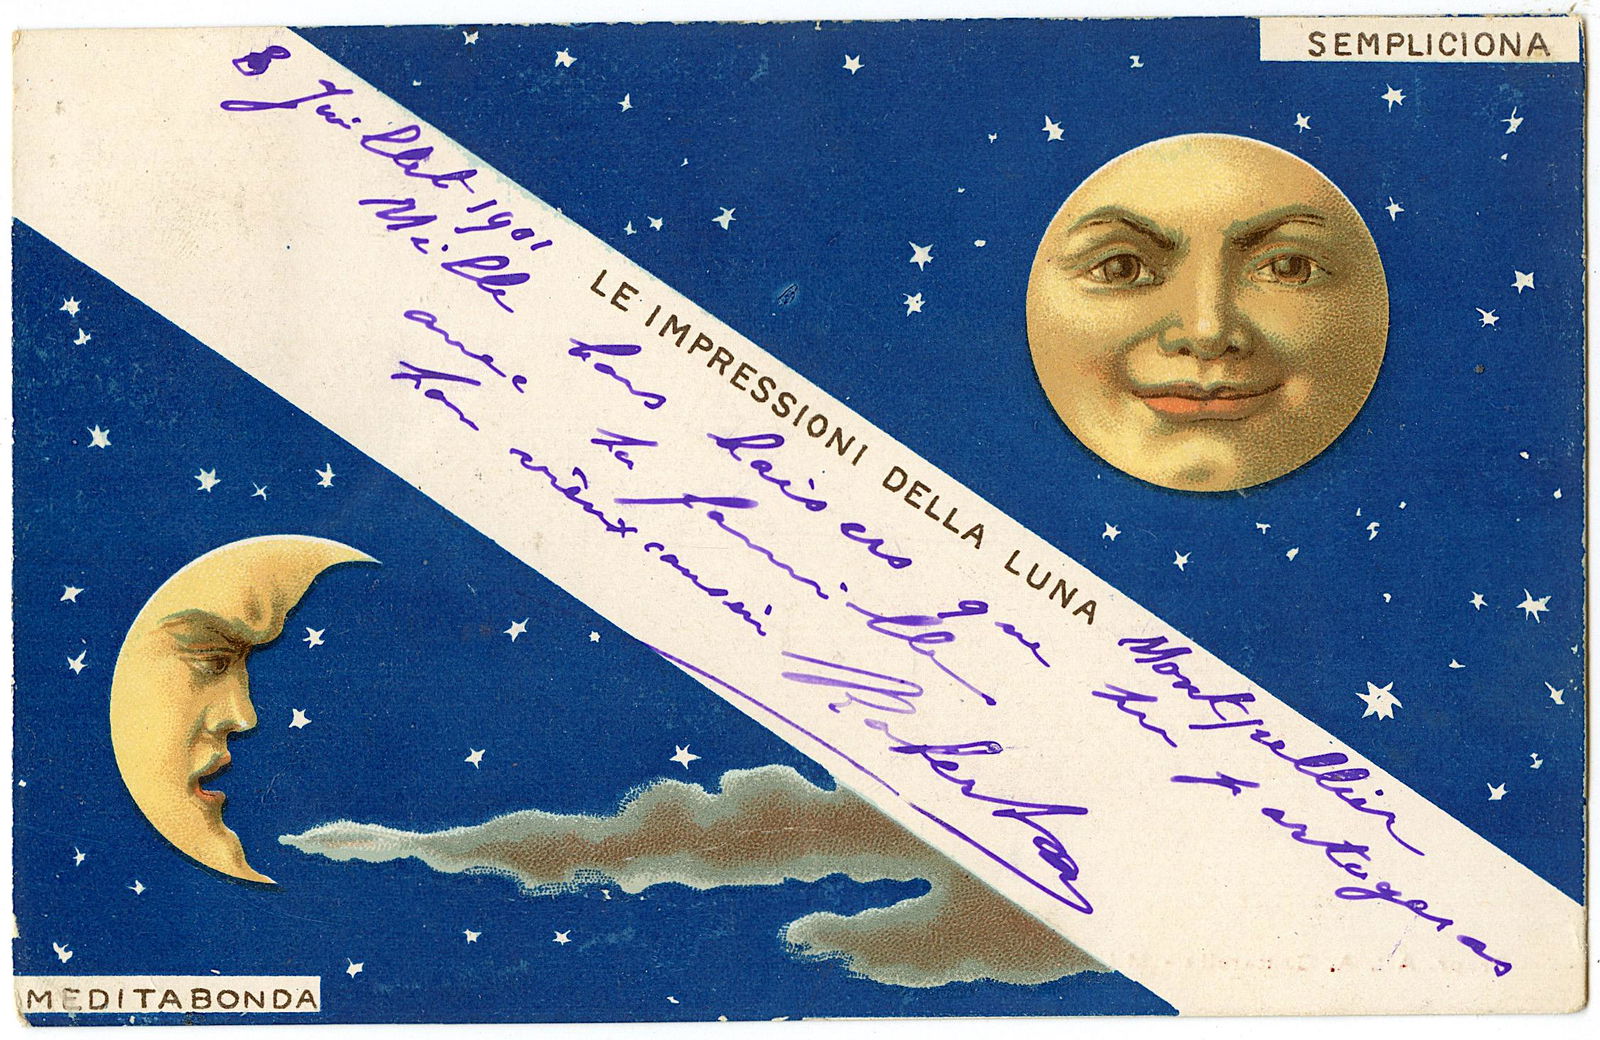 SEMPLICIONA
LE IMPRESSIONI DELLA LUNA
8 Juillet 1901 Montpellier
Mille bons baisers que tu partageras
avec ta famille
ton vieux cousin
MEDITABONDA